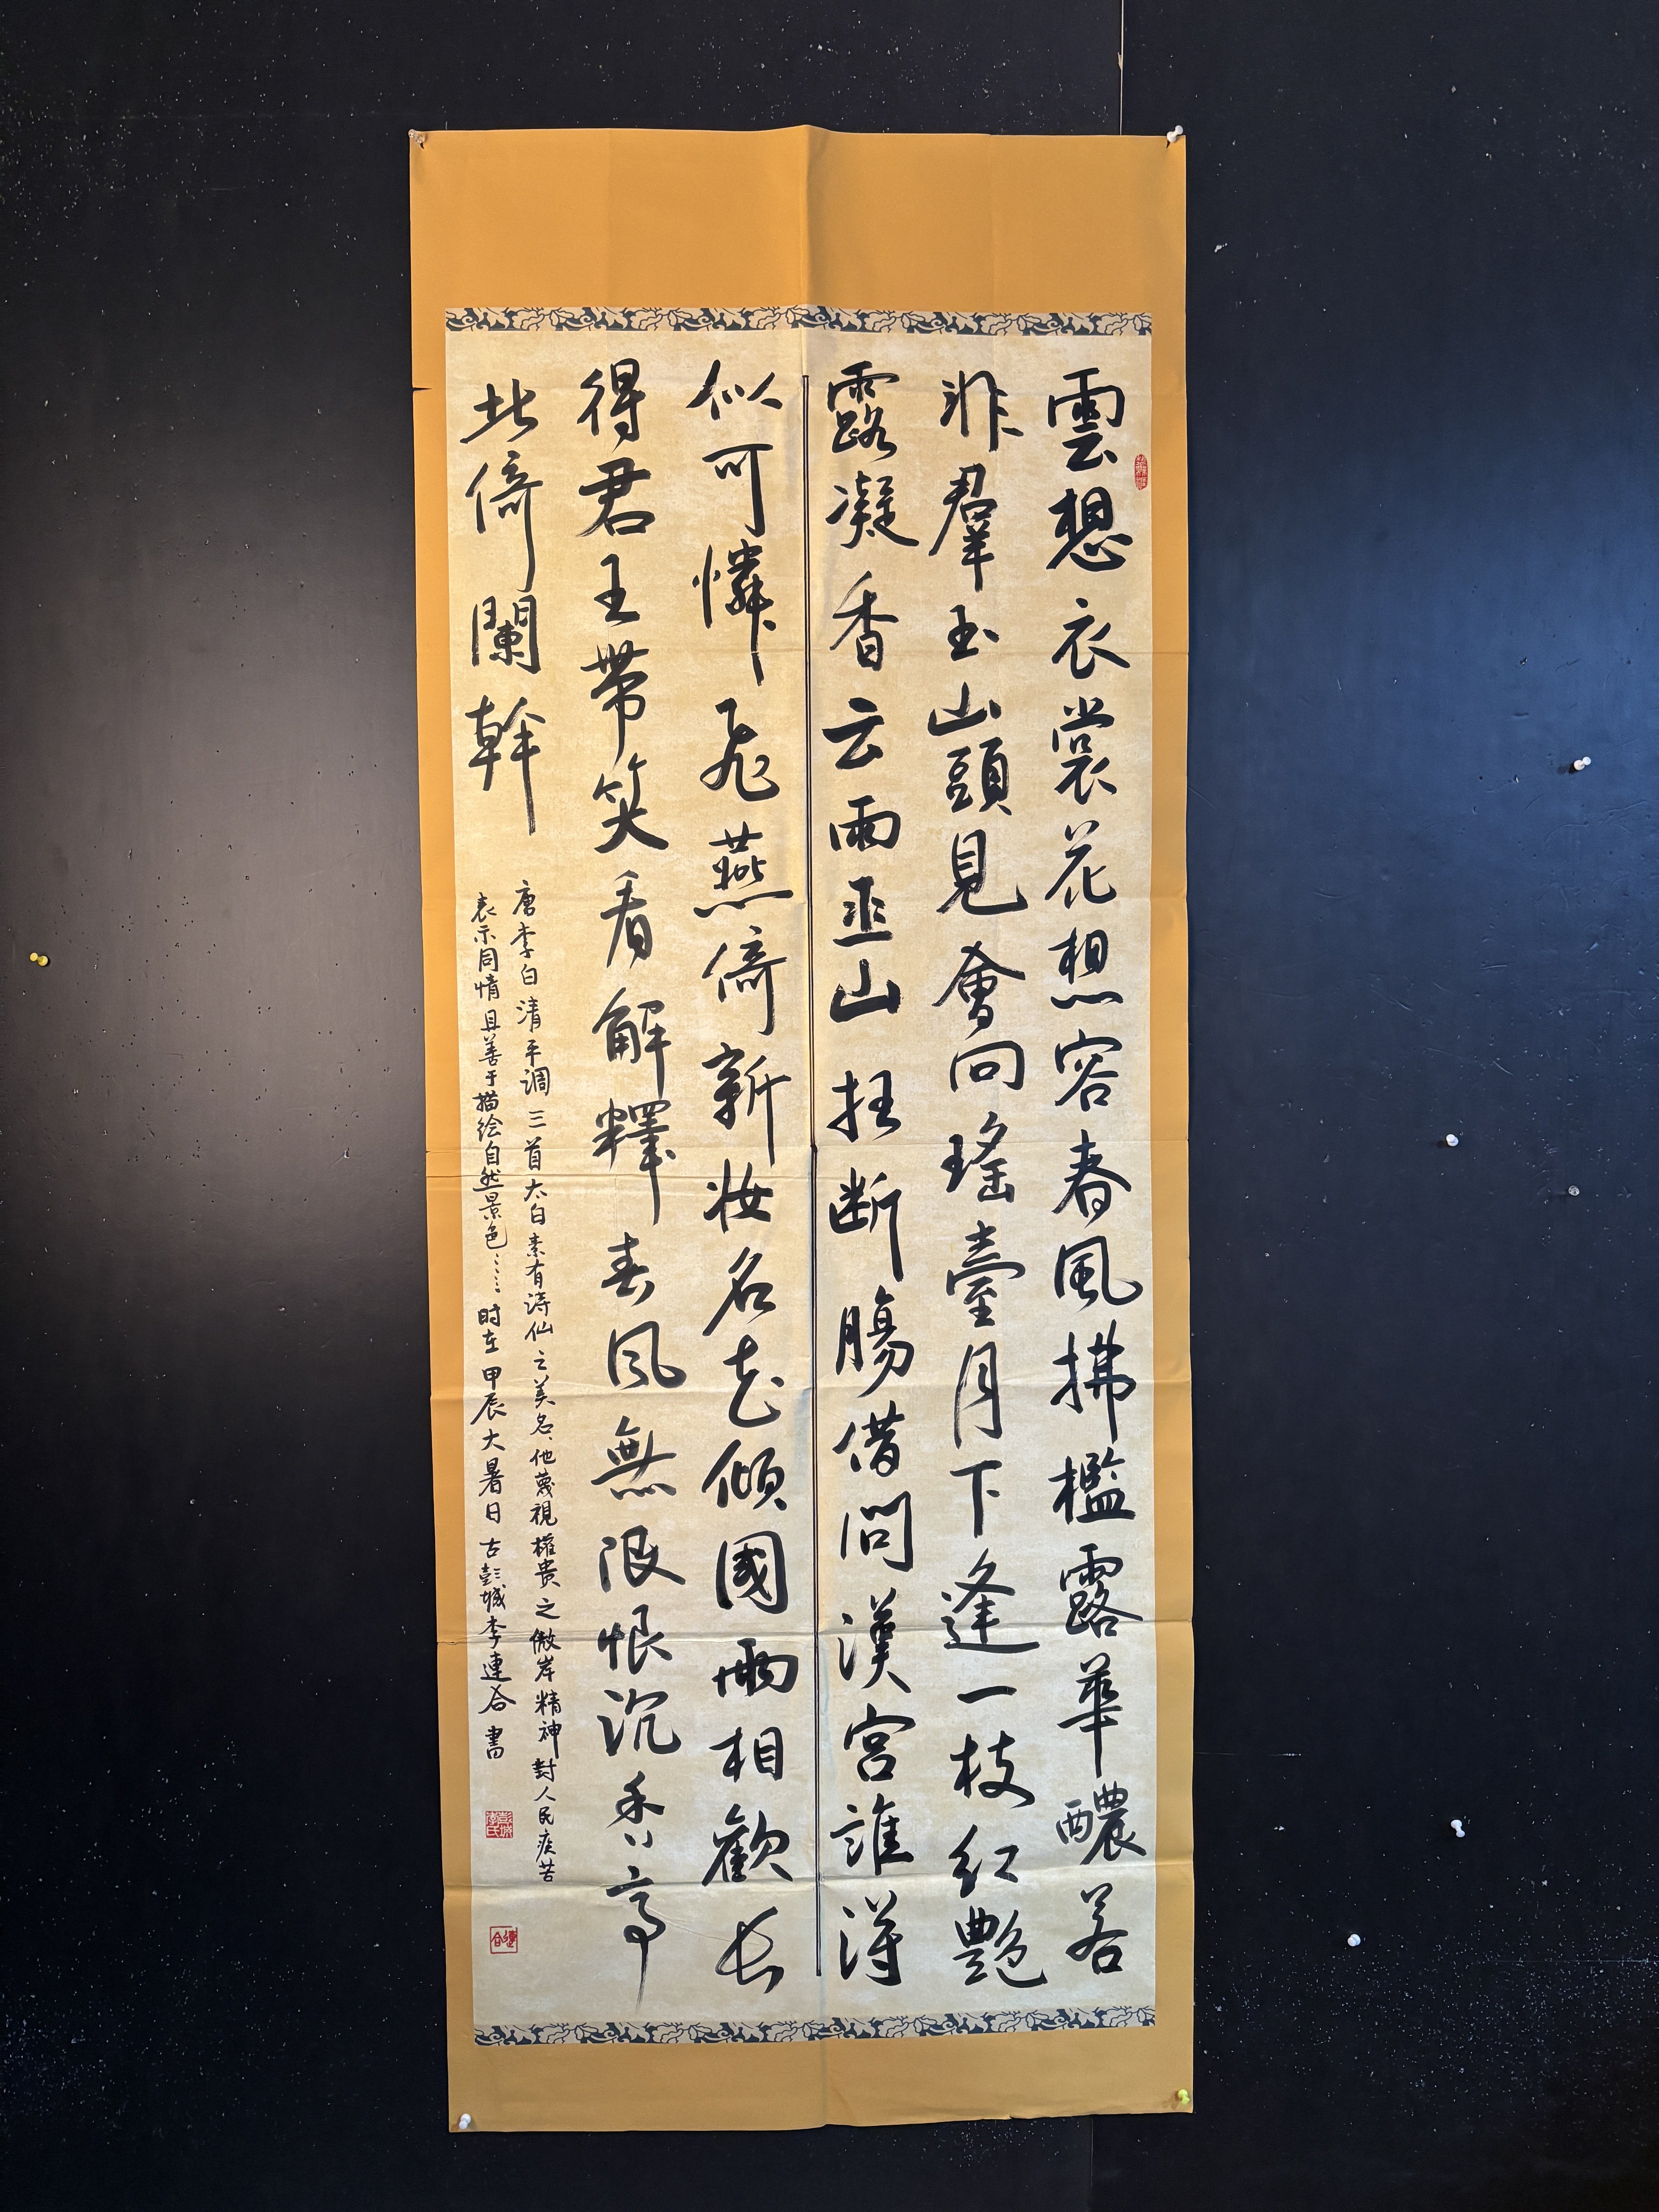 雲想衣裳花想容春風拂檻露華醲若
非羣玉山頭見會向瑤臺月下逢一枝紅艷
露凝香云雨巫山枉断腸借問漢宮誰得
似可憐飛燕倚新妝名花傾國兩相歡長
得君王帶笑看解釋春風無限恨沉香亭
北倚闌幹
唐李白清平调三首太白素有诗仙之美名、他蔑視權贵之傲岸精神對人民疾苦
表示同情且善于描绘自然景色……时在甲辰大暑日古彭城李連合書
彭城李氏
連合